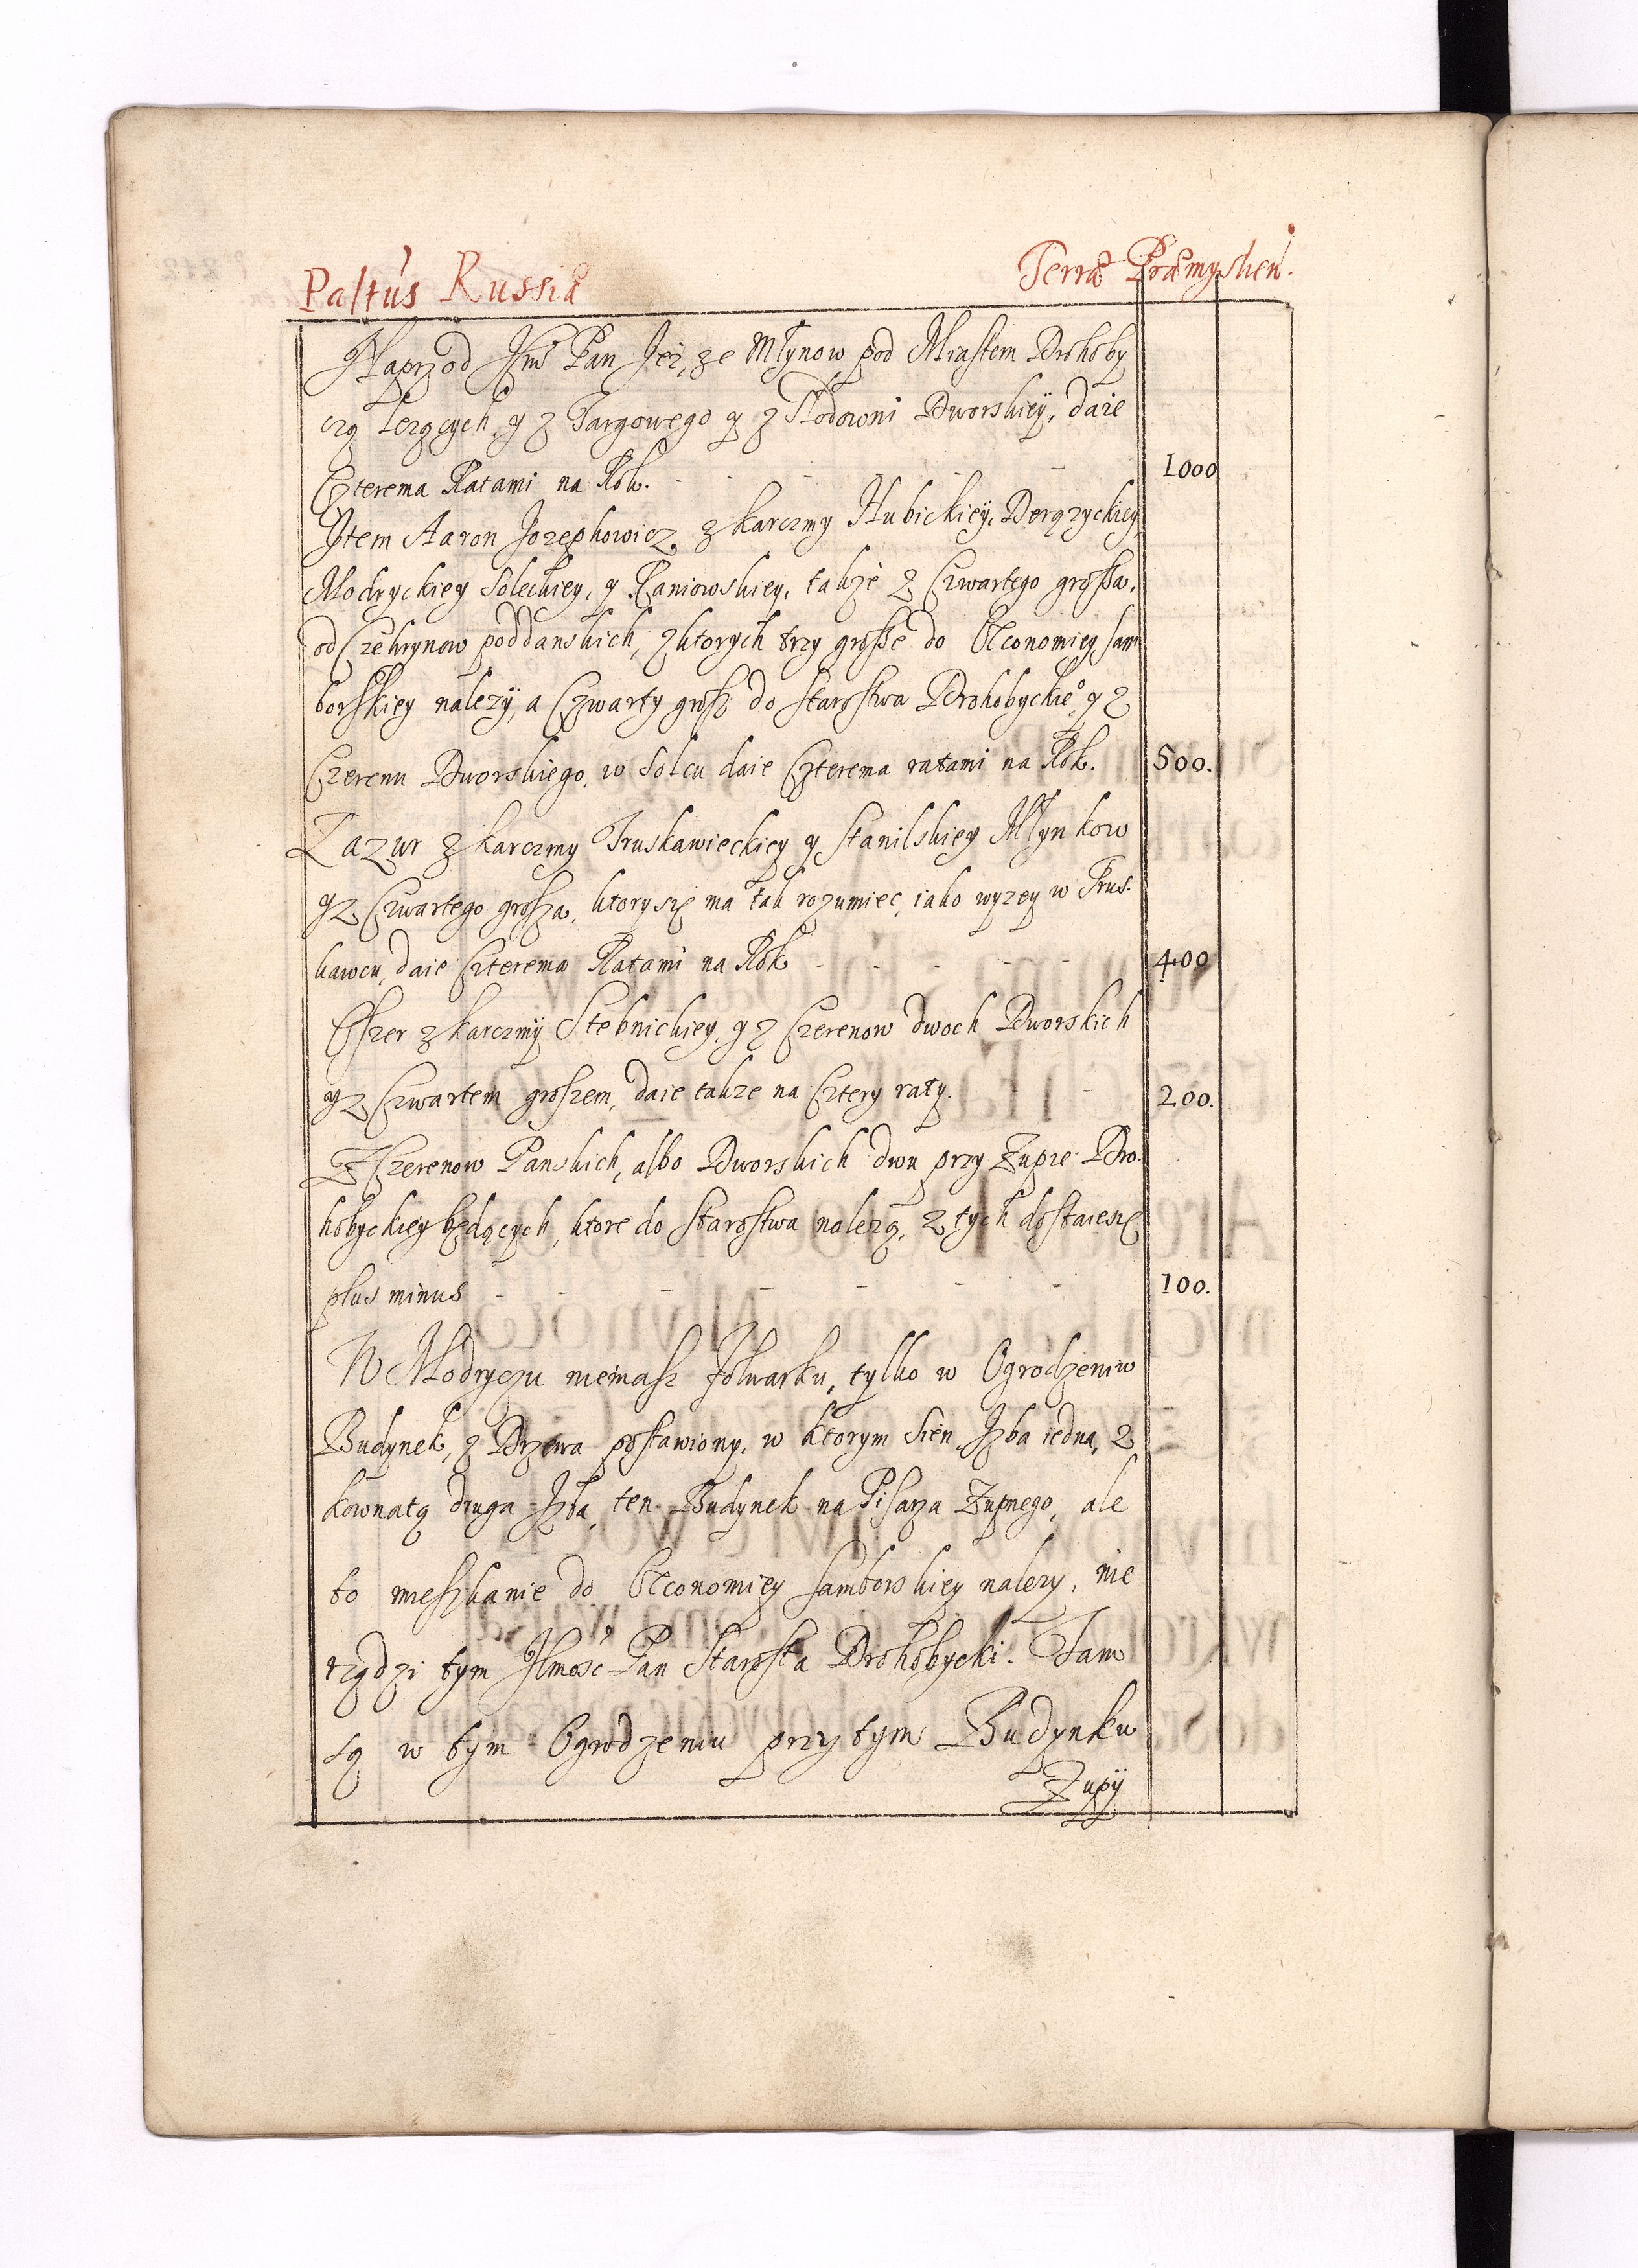 Pałtús Russiæ
Terræ Præmyslień.
Naprzod Jmć Pan Jeż, ze Młynow pod Miastem Drohoby
czą leżących, y z Targowego y z Słodowni Dworskiey, daie
Czterema Ratami na Rok. - - - - - 1000
Jtem Aaron Jozephowicz z karczmy Hubickiey, Derązyckiey,
Modryckiey Soleckiey, y Raniowskiey, także z Czwartego grossa,
od Czehrynow poddanskich, z ktorych trzy grosse do Œconomiey Sam
borskiey należy, a Czwarty gross do Starostwa Drohobyckie°, y z
Czerenu Dworskiego, w Solcu daie Czterema ratami na Rok. 500.
Lazur z karczmy Truskawieckiey y Stanilskiey Młynkow
y z Czwartego grosza, ktory się ma tak rozumiec, iako wyzey w Trus-
kawcu, daie Czterema Ratami na Rok - - - - 400
Eszer z karczmy Stebnickiey, y z Czerenow dwoch Dworskich
y z Czwartem groszem, daie takze na Cztery raty. - 200.
Z Czerenow Panskich, albo Dworskich dwu przy Zupie Dro-
hobyckiey będących, ktore do Starostwa nalezą, z tych dostaie się
plus minus - - - - - - - 100.
W Modryczu niemasz folwarku, tylko w Ogrodzeniu
Budynek, z Drzewa postawiony, w ktorym Sien, Jzba iedna, z
komnatą druga Jzba, ten Budynek na Pisarza Zupnego, ale
to mieszkanie do Œconomiey Samborskiey nalezy, nie
rządzi tym Jmość Pan Starosta Drohobycki. Tam
są w tym Ogrodzeniu przy tym Budynku
Zupy